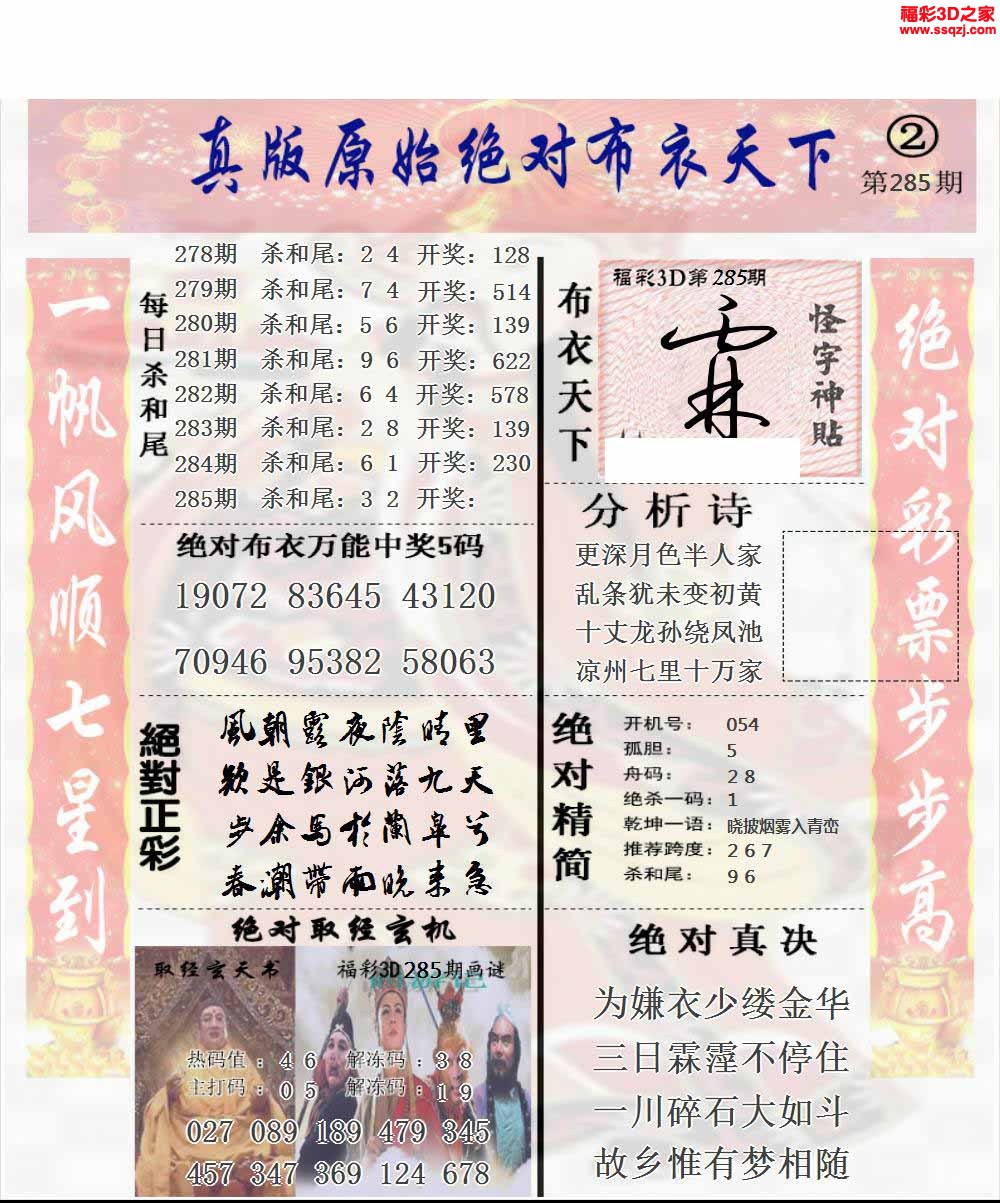 福彩3D之家
www.ssqzj.com
真版原始绝对布衣天下
②
第285期
一帆风顺七星到
每日杀和尾
278期 杀和尾：2 4 开奖：128
279期 杀和尾：7 4 开奖：514
280期 杀和尾：5 6 开奖：139
281期 杀和尾：9 6 开奖：622
282期 杀和尾：6 4 开奖：578
283期 杀和尾：2 8 开奖：139
284期 杀和尾：6 1 开奖：230
285期 杀和尾：3 2 开奖：
绝对布衣万能中奖5码
19072 83645 43120
70946 95382 58063
絕對正彩
風朝露夜陰晴里
疑是銀河落九天
步余馬於蘭皋兮
春潮帶雨晚来急
绝对取经玄机
取经玄天书
福彩3D285期画谜
热码值：4 6 解冻码：3 8
主打码：0 5 解冻码：1 9
027 089 189 479 345
457 347 369 124 678
布衣天下
福彩3D第285期
霖
怪字神贴
分析诗
更深月色半人家
乱条犹未变初黄
十丈龙孙绕凤池
凉州七里十万家
绝对精简
开机号： 054
孤胆： 5
舟码： 2 8
绝杀一码：1
乾坤一语：晓披烟雾入青峦
推荐跨度：2 6 7
杀和尾： 9 6
绝对真决
为嫌衣少缕金华
三日霖霪不停住
一川碎石大如斗
故乡惟有梦相随
绝对彩票步步高